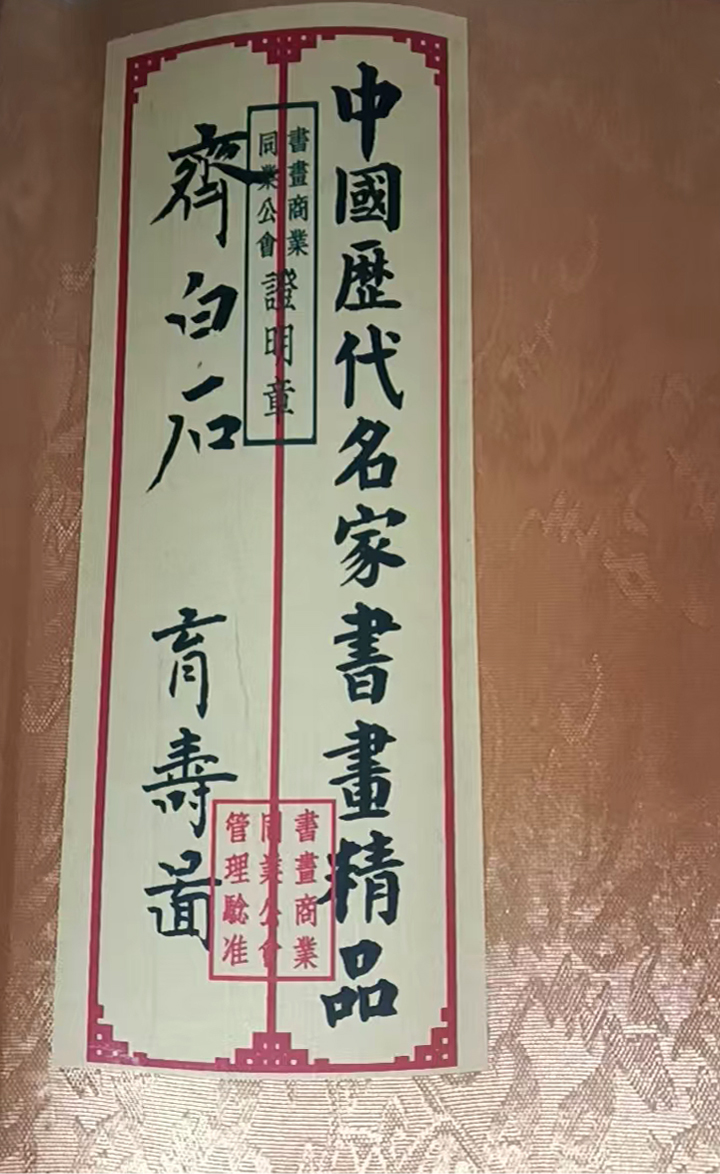 中國歷代名家書畫精品
書畫商業
同業公會
證明章
齊白石 育壽啚
書畫商業
同業公會
管理驗准